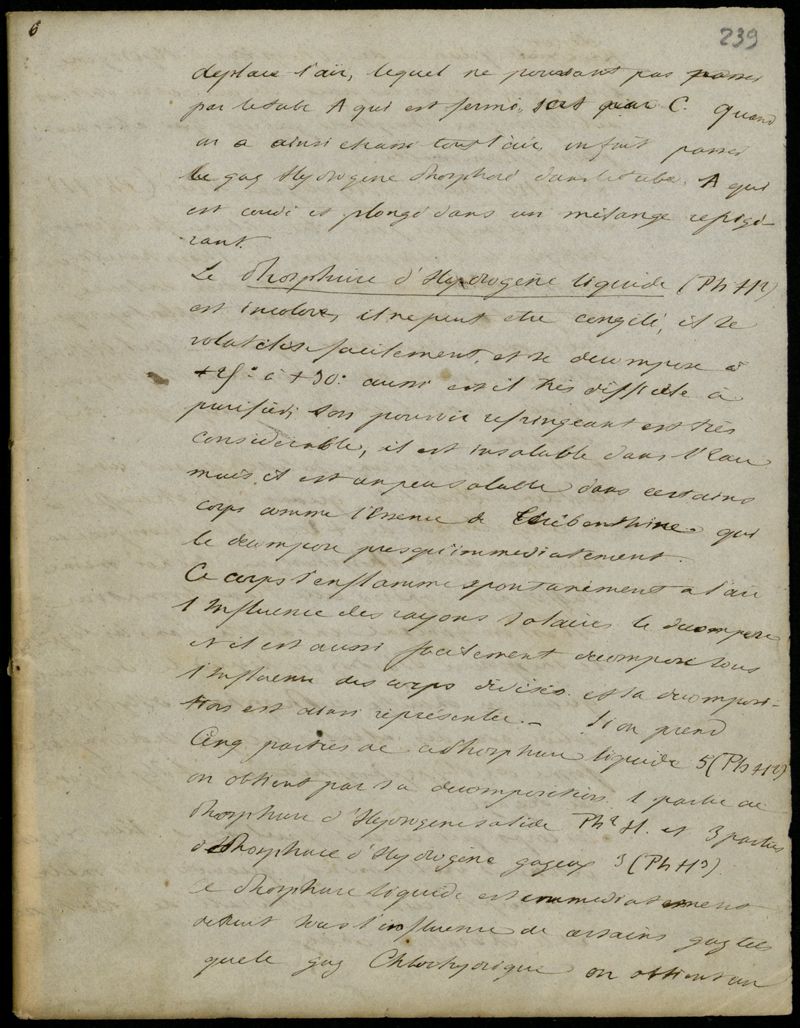 6
239
deplace l'air, lequel ne pouvant pas passer
par le tube A qui est fermé, sort par C. Quand
on a ainsi chassé tout l'air, on fait passer
le gaz Hydrogène Phosphoré dans le tube A qui
est courbé et plongé dans un mélange refrigé-
rant.
Le Phosphure d'Hydrogène liquide (Ph H²)
est incolore, il ne peut etre congelé, il se
volatilise facilement, et se decompose à
+25° à +30° aussi est il très difficile à
purifier, son pouvoir refringeant est très
considérable, il est insoluble dans l'Eau
mais il est un peu soluble dans certains
corps comme l'Essence de Térébenthine qui
le decompose presqu'immediatement.
Ce corps s'enflamme spontanément a l'air
l'Influence des rayons solaires le decompose
et il est aussi facilement decomposé sous
l'influence des corps divisés. et sa decomposi-
tion est ainsi représentée. – Si on prend
Cinq parties de Phosphure liquide 5 (Ph H²)
on obtient par sa decomposition. 1 partie de
Phosphure d'Hydrogène solide Ph² H. et 3 parties
de Phosphure d'Hydrogène gazeux 3 (Ph H³).
Ce Phosphure liquide est immediatement
detruit sous l'influence de certains gaz tels
que le gaz Chlorhydrique on obtient un